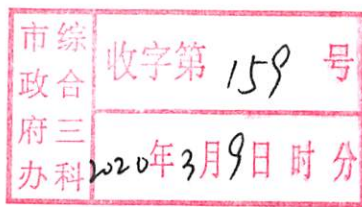 市政府办
综合三科
收字第 159 号
2020年3月9日 时 分